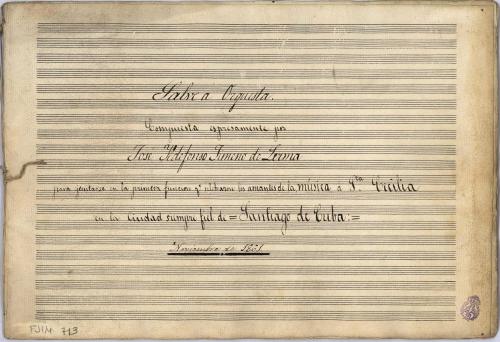 Salve á Orquesta.
Compuesta espresamente por
José Yldefonso Jimeno de Lerma
para ejecutarse en la primera funcion qe. tributaron los amantes de la música á Sta. Cecilia
en la ciudad siempre fiel de = Santiago de Cuba: =
Noviembre de 1861.
FJIM 713